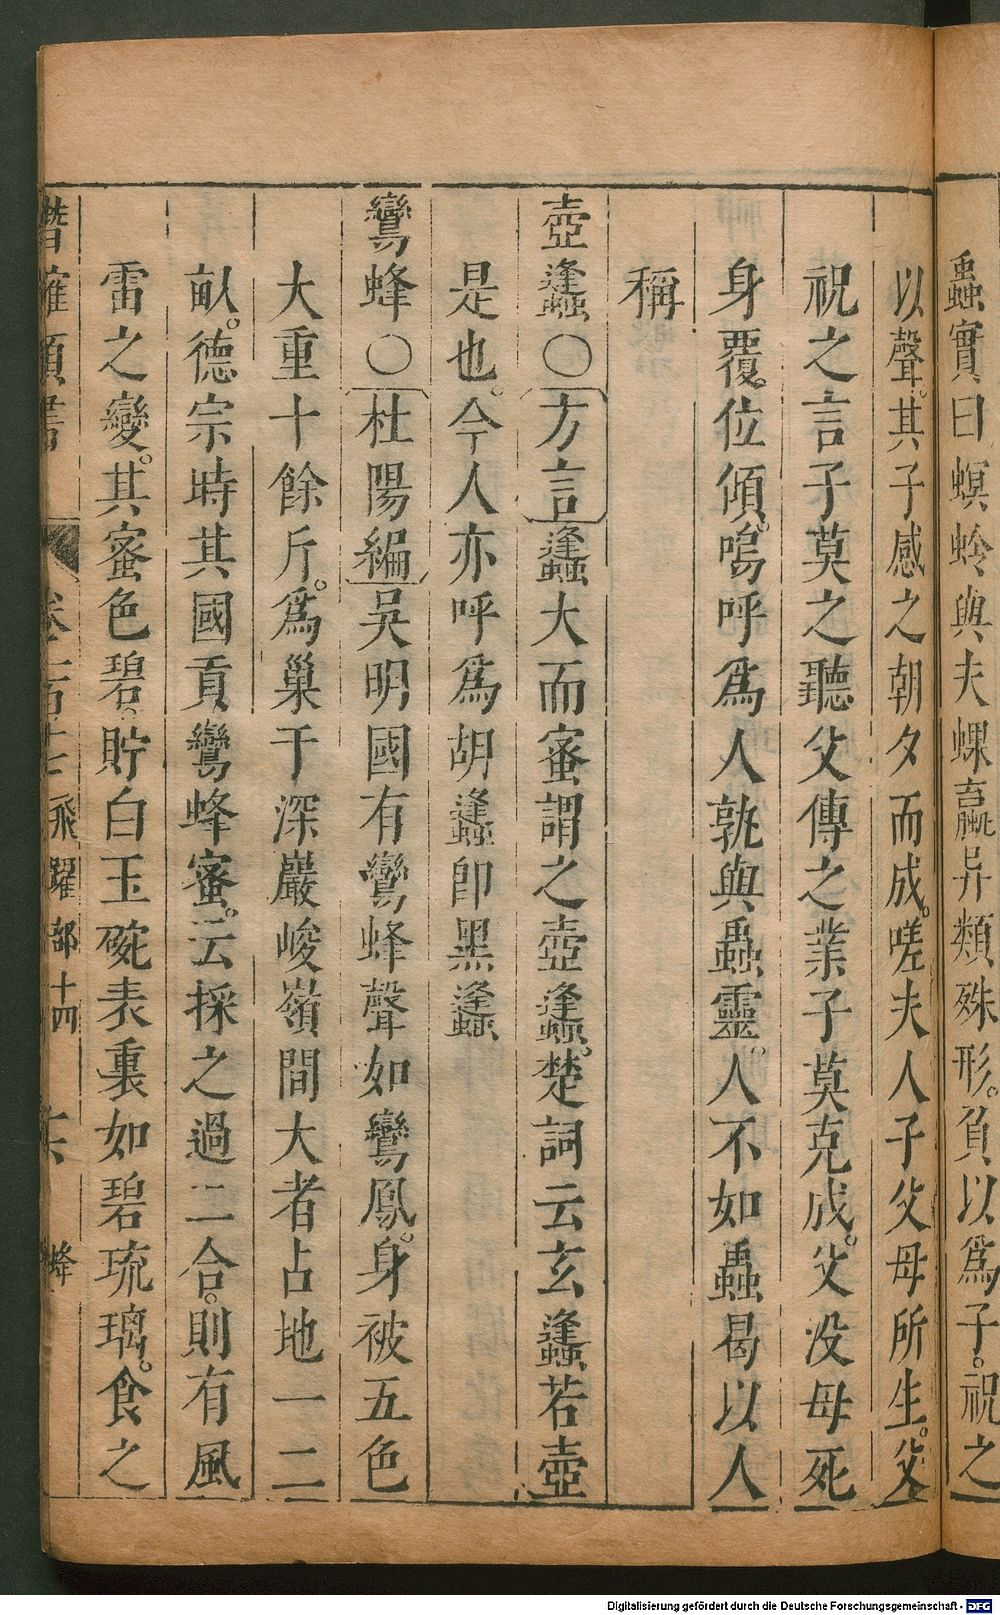 蟲實曰螟蛉與夫蜾蠃异類殊形負以爲子祝之
以聲其子感之朝夕而成嗟夫人子父母所生父
祝之言子莫之聽父傳之業子莫克成父没母死
身覆位傾嗚呼爲人孰與蟲靈人不如蟲曷以人
稱
壺蠭〇方言蠭大而蜜謂之壺蠭楚詞云玄蠭若壺
是也今人亦呼爲胡蠭卽黑蠭
鸞蜂〇杜陽編吳明國有鸞蜂聲如鸞鳳身被五色
大重十餘斤爲巢于深巖峻嶺間大者占地一二
畝德宗時其國貢鸞蜂蜜云採之過二合則有風
雷之變其蜜色碧貯白玉碗表裏如碧琉璃食之
潛確類書 卷一百十七飛躍部十四 六 蜂
Digitalisierung gefördert durch die Deutsche Forschungsgemeinschaft - DFG